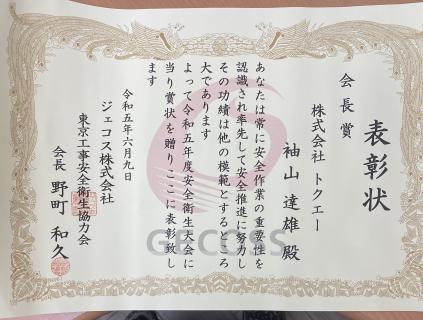 表彰状
会長賞
株式会社 トクエー
袖山 達雄 殿
あなたは常に安全作業の重要性を
認識され率先して安全推進に努力し
その功績は他の模範とするところ
大であります
よって令和五年度安全衛生大会に
当り賞状を贈りここに表彰致し
ます
令和五年六月九日
ジェコス株式会社
東京工事安全衛生協力会
会長 野町 和久
GECOSS